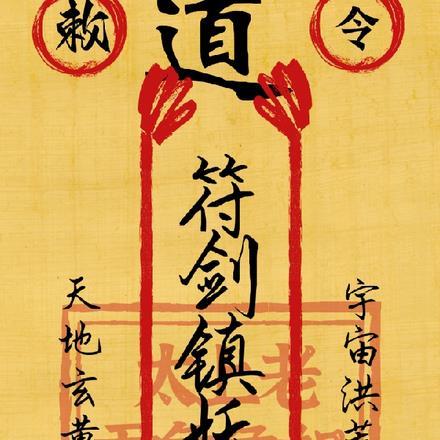 敕
道
令
符剑镇妖
天地玄黄
宇宙洪荒
太上老